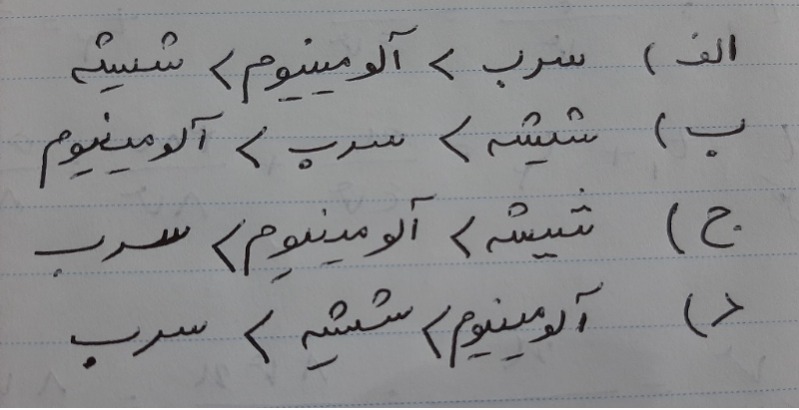 الف) سرب > آلومینیوم > شیشه
ب) شیشه > سرب > آلومینیوم
ج) شیشه > آلومینیوم > سرب
د) آلومینیوم > شیشه > سرب